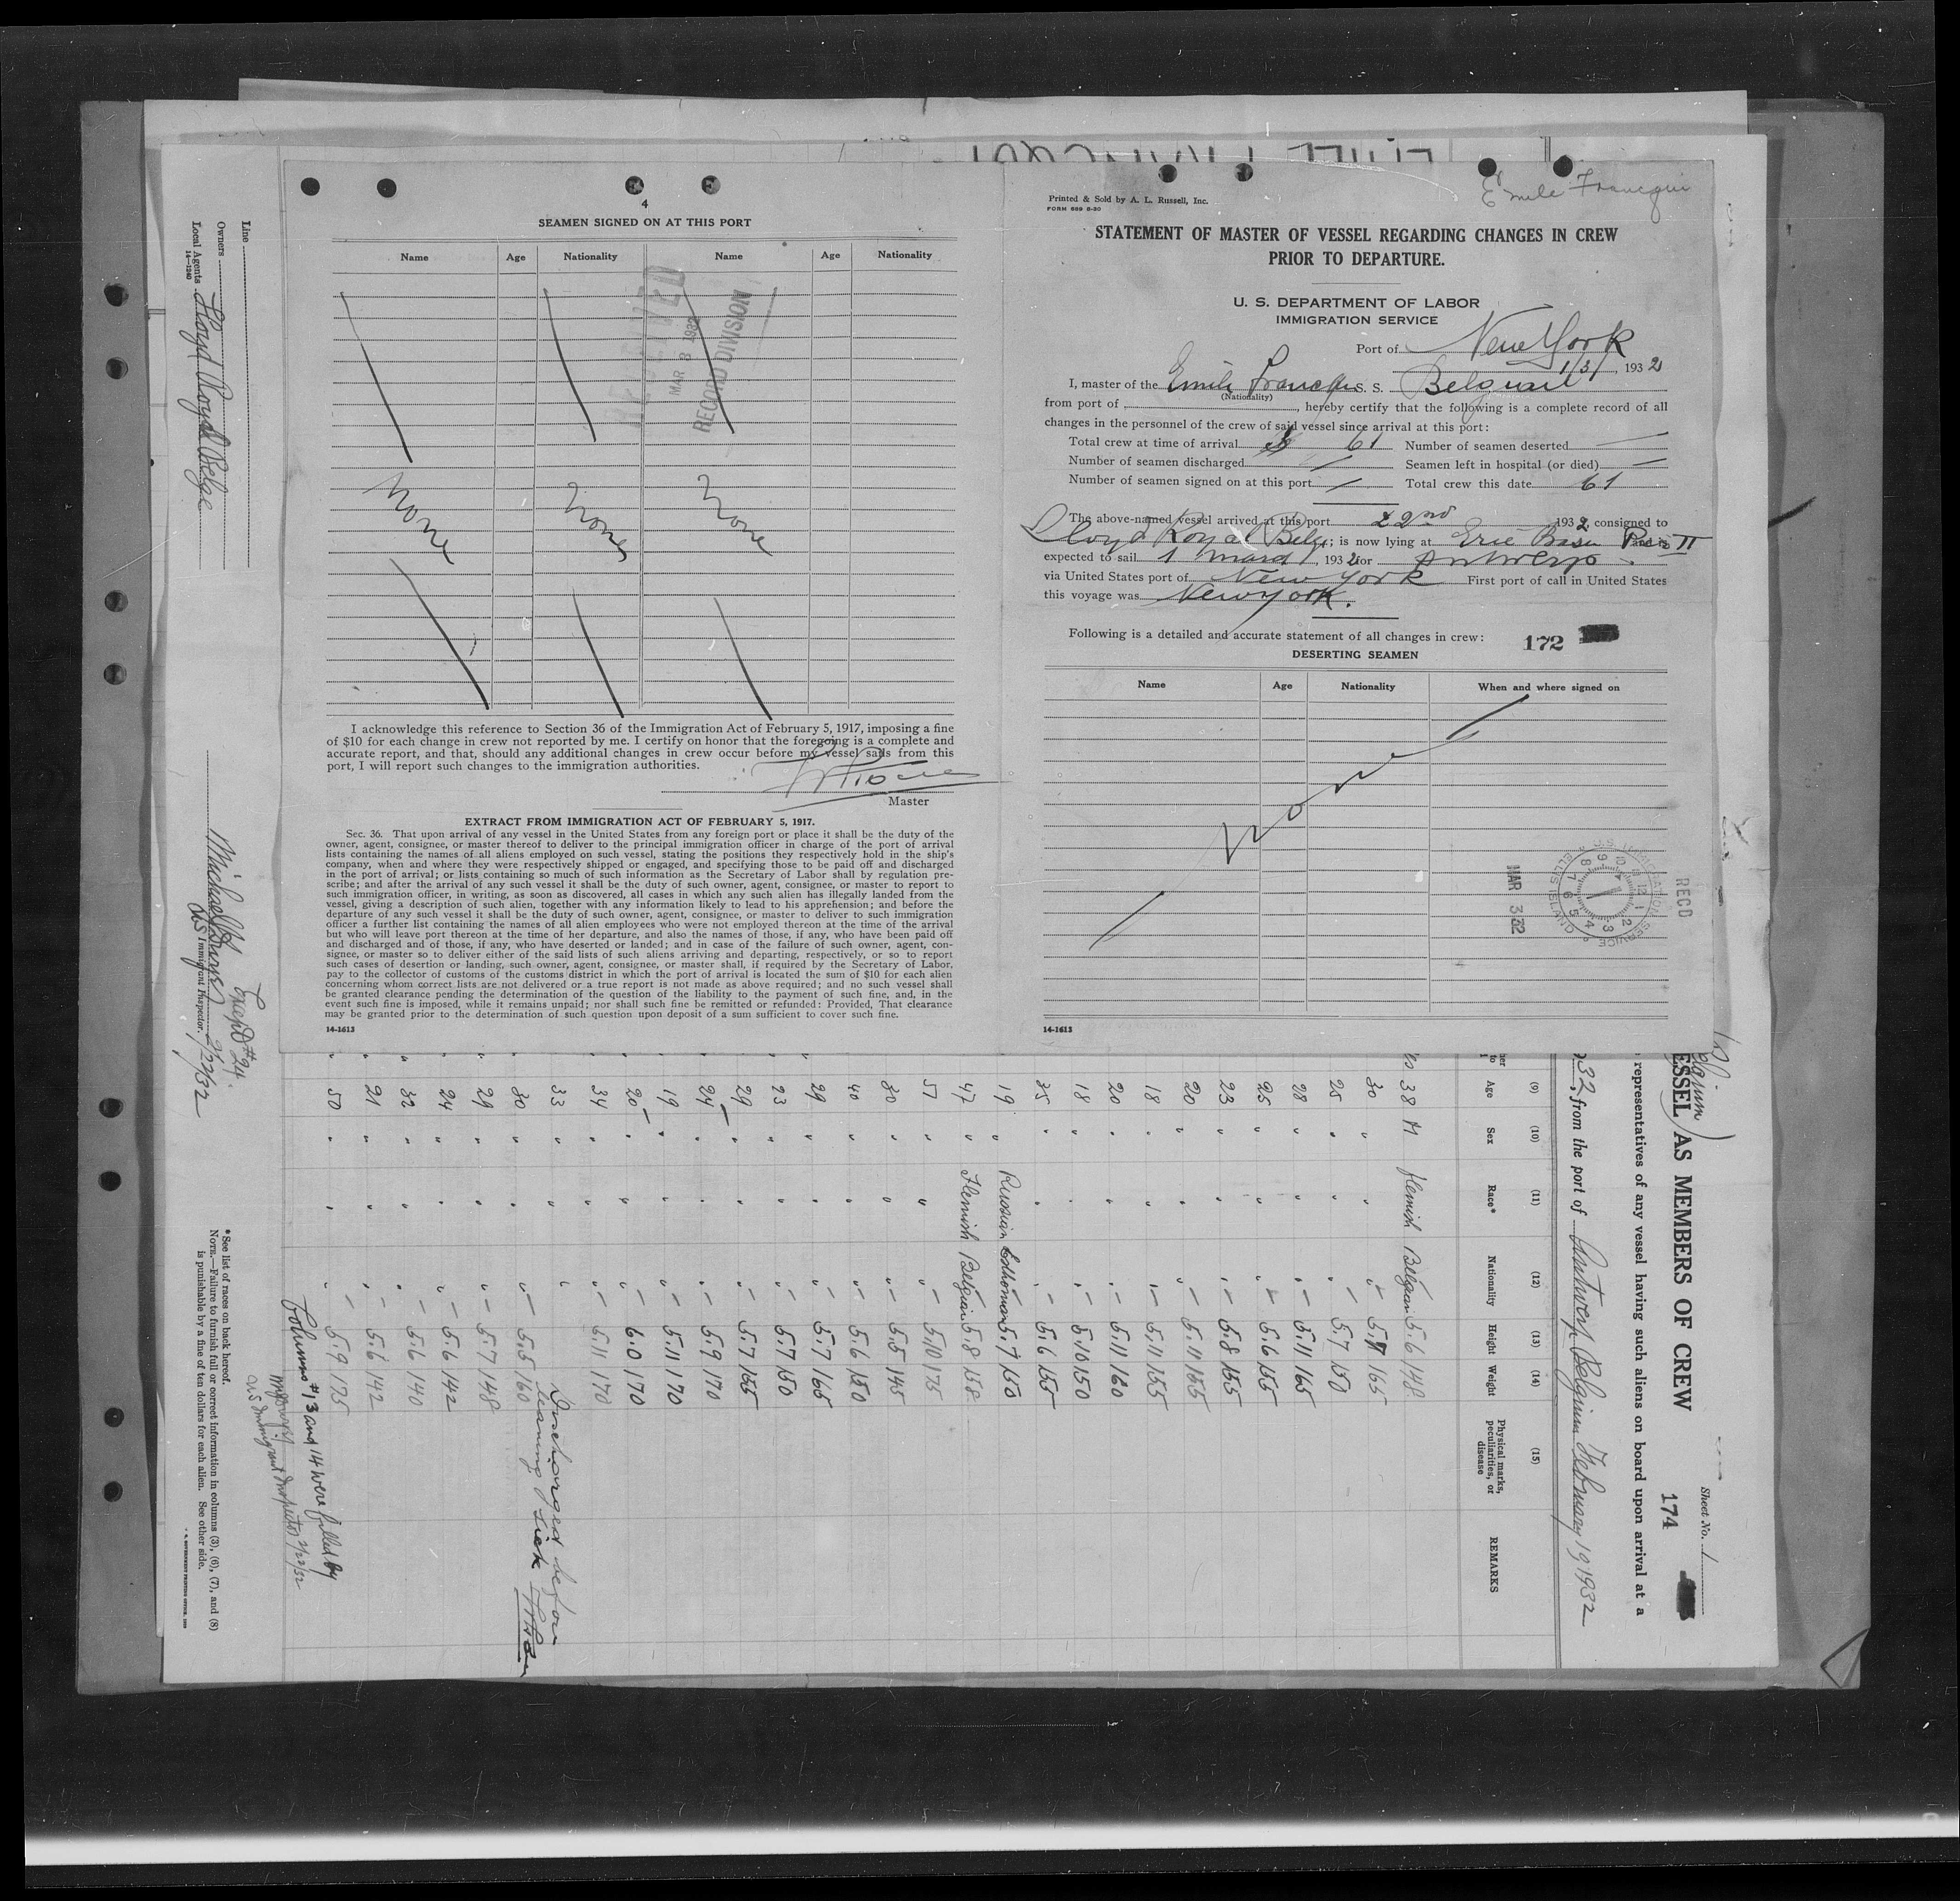 4
SEAMEN SIGNED ON AT THIS PORT
Name Age Nationality Name Age Nationality
RECEIVED
MAR 3 1932
RECORD DIVISION
None None None
I acknowledge this reference to Section 36 of the Immigration Act of February 5, 1917, imposing a fine
of $10 for each change in crew not reported by me. I certify on honor that the foregoing is a complete and
accurate report, and that, should any additional changes in crew occur before my vessel sails from this
port, I will report such changes to the immigration authorities.
Master
EXTRACT FROM IMMIGRATION ACT OF FEBRUARY 5, 1917.
Sec. 36. That upon arrival of any vessel in the United States from any foreign port or place it shall be the duty of the
owner, agent, consignee, or master thereof to deliver to the principal immigration officer in charge of the port of arrival
lists containing the names of all aliens employed on such vessel, stating the positions they respectively hold in the ship's
company, when and where they were respectively shipped or engaged, and specifying those to be paid off and discharged
in the port of arrival; or lists containing so much of such information as the Secretary of Labor shall by regulation pre-
scribe; and after the arrival of any such vessel it shall be the duty of such owner, agent, consignee, or master to report to
such immigration officer, in writing, as soon as discovered, all cases in which any such alien has illegally landed from the
vessel, giving a description of such alien, together with any information likely to lead to his apprehension; and before the
departure of any such vessel it shall be the duty of such owner, agent, consignee, or master to deliver to such immigration
officer a further list containing the names of all alien employees who were not employed thereon at the time of the arrival
but who will leave port thereon at the time of her departure, and also the names of those, if any, who have been paid off
and discharged and of those, if any, who have deserted or landed; and in case of the failure of such owner, agent, con-
signee, or master so to deliver either of the said lists of such aliens arriving and departing, respectively, or so to report
such cases of desertion or landing, such owner, agent, consignee, or master shall, if required by the Secretary of Labor,
pay to the collector of customs of the customs district in which the port of arrival is located the sum of $10 for each alien
concerning whom correct lists are not delivered or a true report is not made as above required; and no such vessel shall
be granted clearance pending the determination of the question of the liability to the payment of such fine, and, in the
event such fine is imposed, while it remains unpaid; nor shall such fine be remitted or refunded: Provided, That clearance
may be granted prior to the determination of such question upon deposit of a sum sufficient to cover such fine.
14-1613
Emile Francqui
Printed & Sold by A. L. Russell, Inc.
FORM 689 8-30
STATEMENT OF MASTER OF VESSEL REGARDING CHANGES IN CREW
PRIOR TO DEPARTURE.
U. S. DEPARTMENT OF LABOR
IMMIGRATION SERVICE
Port of New York
1/3/, 1932
I, master of the Emile Francqui S. S. Belgian
(Nationality)
from port of , hereby certify that the following is a complete record of all
changes in the personnel of the crew of said vessel since arrival at this port:
Total crew at time of arrival 61 Number of seamen deserted
Number of seamen discharged Seamen left in hospital (or died)
Number of seamen signed on at this port Total crew this date 61
The above-named vessel arrived at this port 22nd 1932 consigned to
Lloyd Royal Belge; is now lying at Erie Basin Pier II
expected to sail 1 , 1932 for Antwerp
via United States port of New York First port of call in United States
this voyage was New York.
Following is a detailed and accurate statement of all changes in crew: 172
DESERTING SEAMEN
Name Age Nationality When and where signed on
None
RECD
MAR 3 32
U.S. IMMIGRATION SERVICE ELLIS ISLAND
14-1613
Sheet No. 1
174
ESSEL AS MEMBERS OF CREW
representatives of any vessel having such aliens on board upon arrival at a
32, from the port of Antwerp Belgium February 19 1932
(9) (10) (11) (12) (13) (14) (15)
Age Sex Race* Nationality Height Weight Physical marks, peculiarities, or disease REMARKS
38 M Flemish Belgian 5.6 148
30 " " " 5.7 165
25 " " " 5.7 150
28 " " " 5.11 165
25 " " " 5.6 155
23 " " " 5.8 155
20 " " " 5.11 155
18 " " " 5.11 155
20 " " " 5.11 160
18 " " " 5.10 150
35 " " " 5.6 155
19 " Russian 5.7 150
47 " Flemish Belgian 5.8 158
57 " " " 5.10 175
30 " " " 5.5 145
40 " " " 5.6 150
29 " " " 5.7 165
23 " " " 5.7 150
29 " " " 5.7 155
24 " " " 5.9 170
19 " " " 5.11 170
20 " " " 6.0 170
34 " " " 5.11 170
33 " " " Discharged before leaving sick
30 " " " 5.5 160
29 " " " 5.7 148
24 " " " 5.6 142
32 " " " 5.6 140
21 " " " 5.6 142
50 " " " 5.9 175
Columns #13 and 14 were filled by
US Immigrant Inspector 2/22/32
Line
Owners
Local Agents Lloyd Royal Belge
14-1240
Except #24.
US Immigrant Inspector. 2/22/32
* See list of races on back hereof.
NOTE.—Failure to furnish full or correct information in columns (3), (6), (7), and (8)
is punishable by a fine of ten dollars for each alien. See other side.